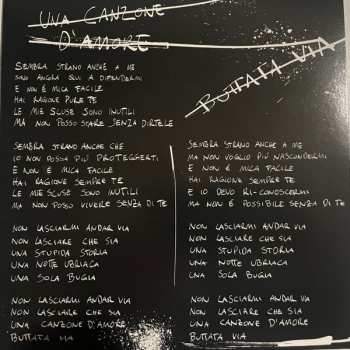 UNA CANZONE
D'AMORE
BUTTATA VIA
SEMBRA STRANO ANCHE A ME
SONO ANCORA QUI A DIFENDERMI
E NON È MICA FACILE
HAI RAGIONE PURE TE
LE MIE SCUSE SONO INUTILI
MA NON POSSO STARE SENZA DIRTELE
SEMBRA STRANO ANCHE CHE
IO NON POSSA PIÙ PROTEGGERTI
E NON È MICA FACILE
HAI RAGIONE SEMPRE TE
LE MIE SCUSE SONO INUTILI
MA NON POSSO VIVERE SENZA DI TE
NON LASCIARMI ANDAR VIA
NON LASCIARE CHE SIA
UNA STUPIDA STORIA
UNA NOTTE UBRIACA
UNA SOLA BUGIA
NON LASCIARMI ANDAR VIA
NON LASCIARE CHE SIA
UNA CANZONE D'AMORE
BUTTATA VIA
SEMBRA STRANO ANCHE A ME
MA NON VOGLIO PIÙ NASCONDERMI
E NON È MICA FACILE
HAI RAGIONE SEMPRE TE
E IO DEVO RI-CONOSCERMI
MA NON È POSSIBILE SENZA DI TE
NON LASCIARMI ANDAR VIA
NON LASCIARE CHE SIA
UNA STUPIDA STORIA
UNA NOTTE UBRIACA
UNA SOLA BUGIA
NON LASCIARMI ANDAR VIA
NON LASCIARE CHE SIA
UNA CANZONE D'AMORE
BUTTATA VIA